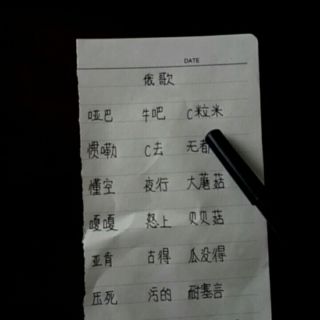 DATE
俄歌
哑巴 牛吧 C粒米
惯嘞 C去 无都
懂空 夜行 大蘑菇
嘎嘎 怒上 贝贝菇
亚肯 古得 瓜没得
压死 污的 耐塞言